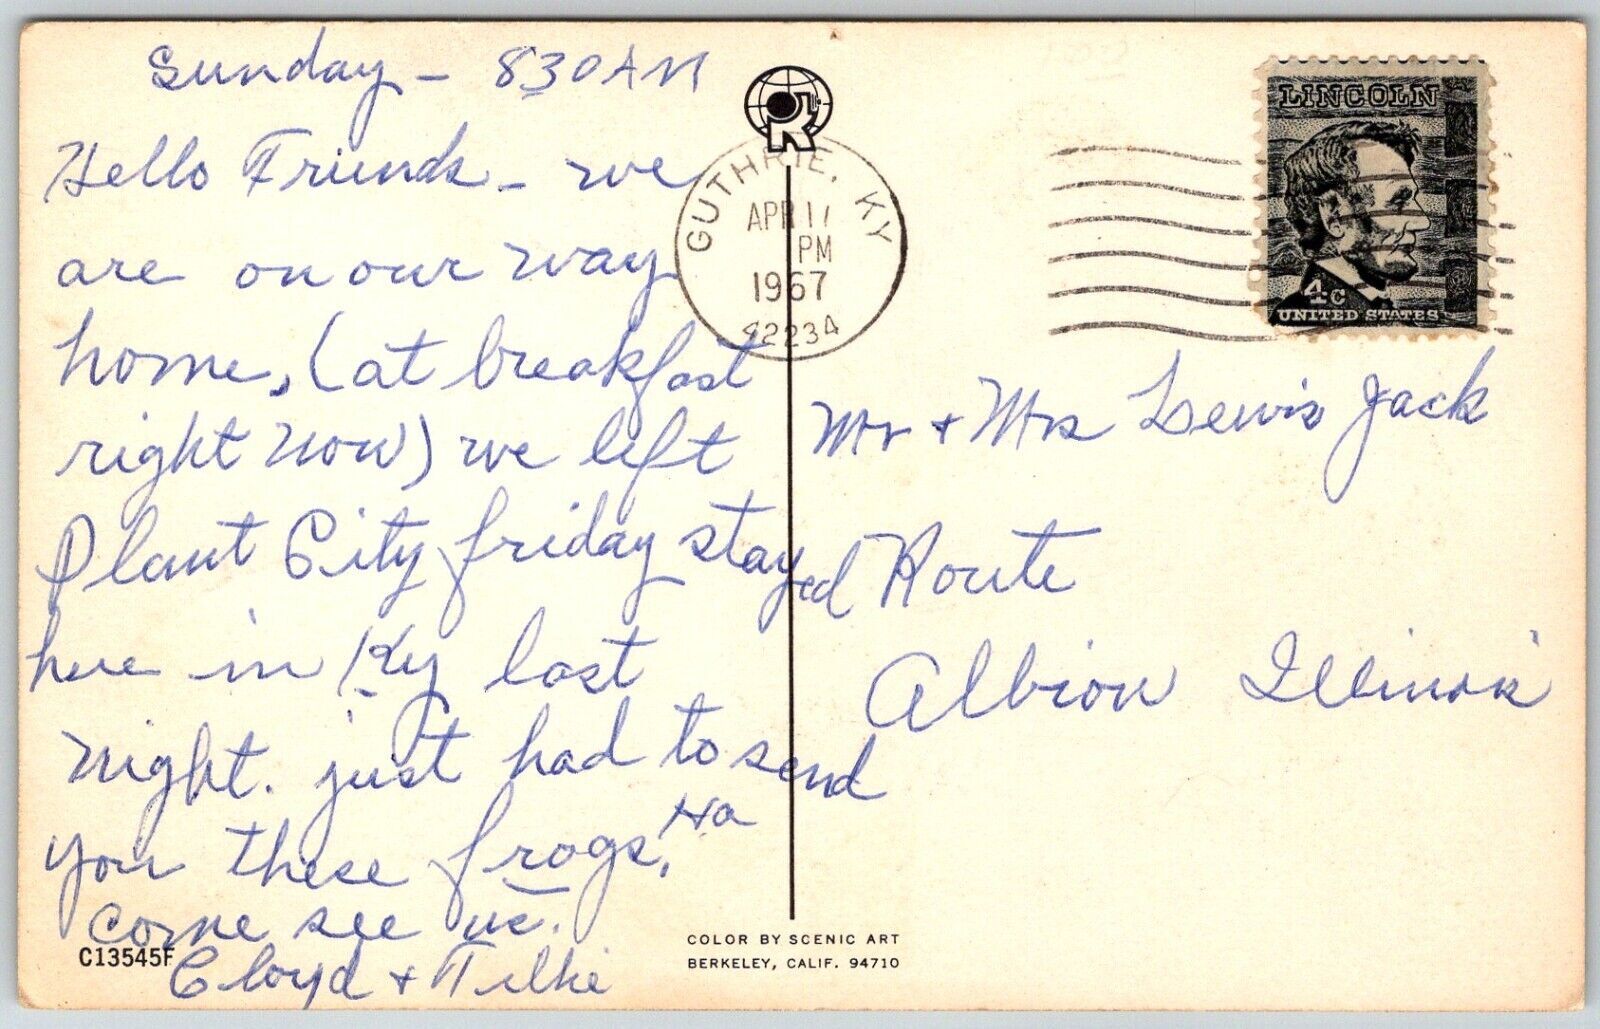 Sunday - 830 AM
Hello Friends - we
are on our way
home, (at breakfast
right now) we left
Plant City friday stayed
here in Ky last
night. just had to send
you these frogs. Ha
come see us.
Cloyd + Tillie
C13545F
GUTHRIE, KY
APR 17
PM
1967
42234
LINCOLN
4c
UNITED STATES
Mr + Mrs Lewis Jack
Route
Albion Illinois
COLOR BY SCENIC ART
BERKELEY, CALIF. 94710